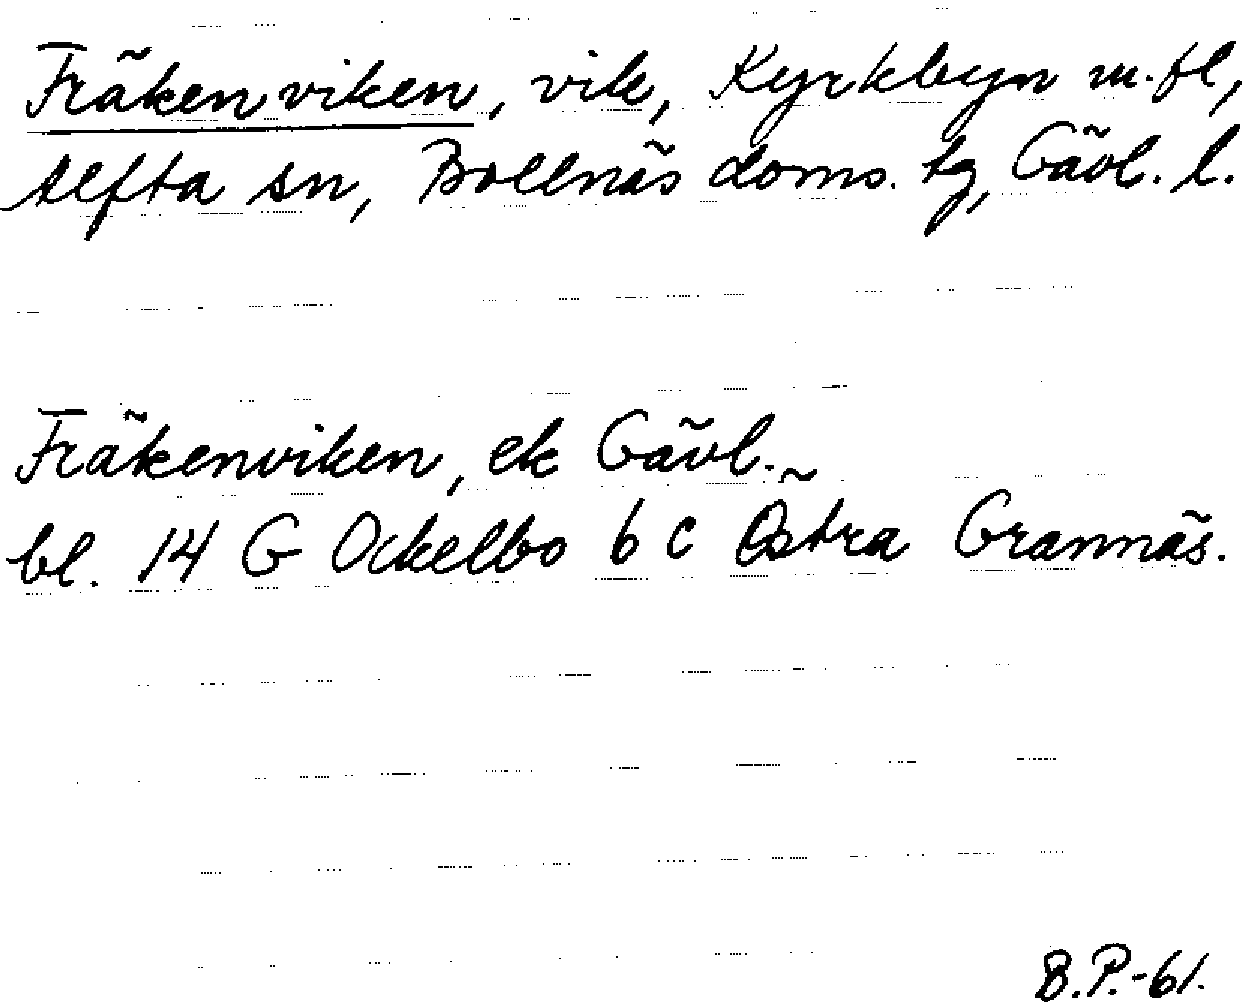 Fräkenviken, vik, Kyrkbyn m.fl,
Alfta sn, Bollnäs doms. tg, Gävl. l.
Fräkenviken, ek Gävl.
bl. 14 G Ockelbo b c Östra Grannäs.
B.P.-61.